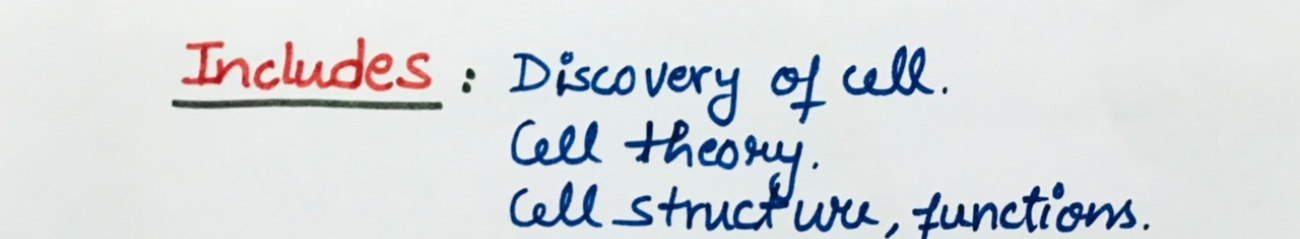 Includes : Discovery of cell.
Cell theory.
Cell structure, functions.